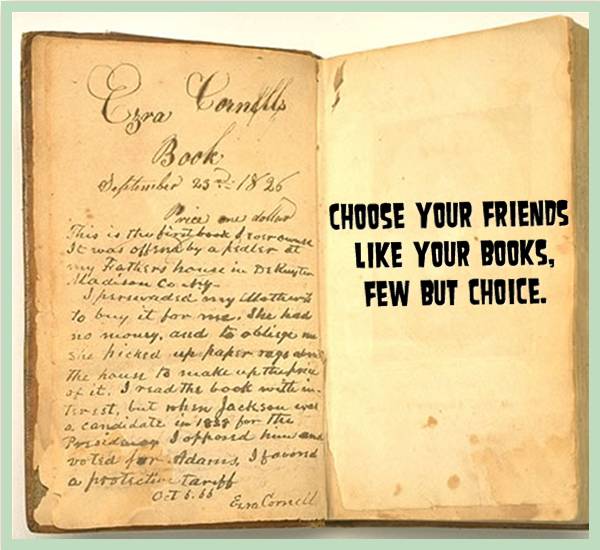 Ezra Cornells
Book
September 23rd 1826
Price one dollar
This is the first book I ever owned
It was offered by a pedler at
my Fathers house in DeRuyter
Madison Co NY
I perswaded my Mother
to buy it for me. She had
no money, and to obliege me
she picked up paper rags about
the house to make up the price
of it. I read the book with in-
terest, but when Jackson was
a candidate in 1828 for the
Presidency I opposed him and
voted for Adams, I favored
a protective tariff
Oct 6. 66
Ezra Cornell
CHOOSE YOUR FRIENDS
LIKE YOUR BOOKS,
FEW BUT CHOICE.